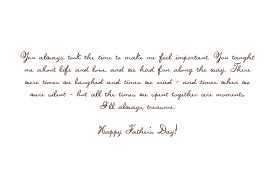 You always took the time to make me feel important. You taught
me about life and love and we had fun along the way. There
were times we laughed and times we cried - and times when we
were silent - but all the times we spent together are moments
I'll always treasure.
Happy Father's Day!